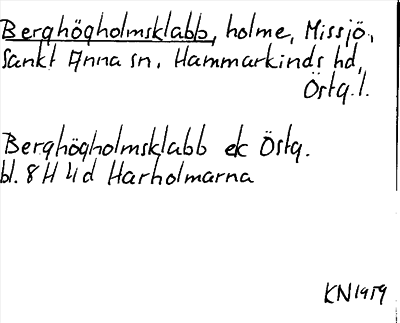 Berghögholmsklabb, holme, Missjö,
Sankt Anna sn, Hammarkinds hd,
Östg.l.
Berghögholmsklabb ek Östg.
bl. 8H 4d Harholmarna
KN 1959